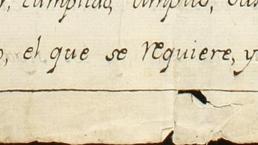 cumplido, amplio, bas
o, el que se requiere, y